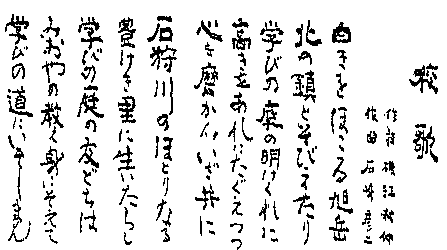 校歌
作詞
作曲 石崎
白きをほこる旭岳
北の鎮とそびえたり
学びの庭の明けくれに
高きをあれにたぐえつつ
心を磨かんいざ共に
石狩川のほとりなる
豊けき里に生いたちし
学びの庭の友どちは
みおやの教へ身にそえて
学びの道にいそしまん